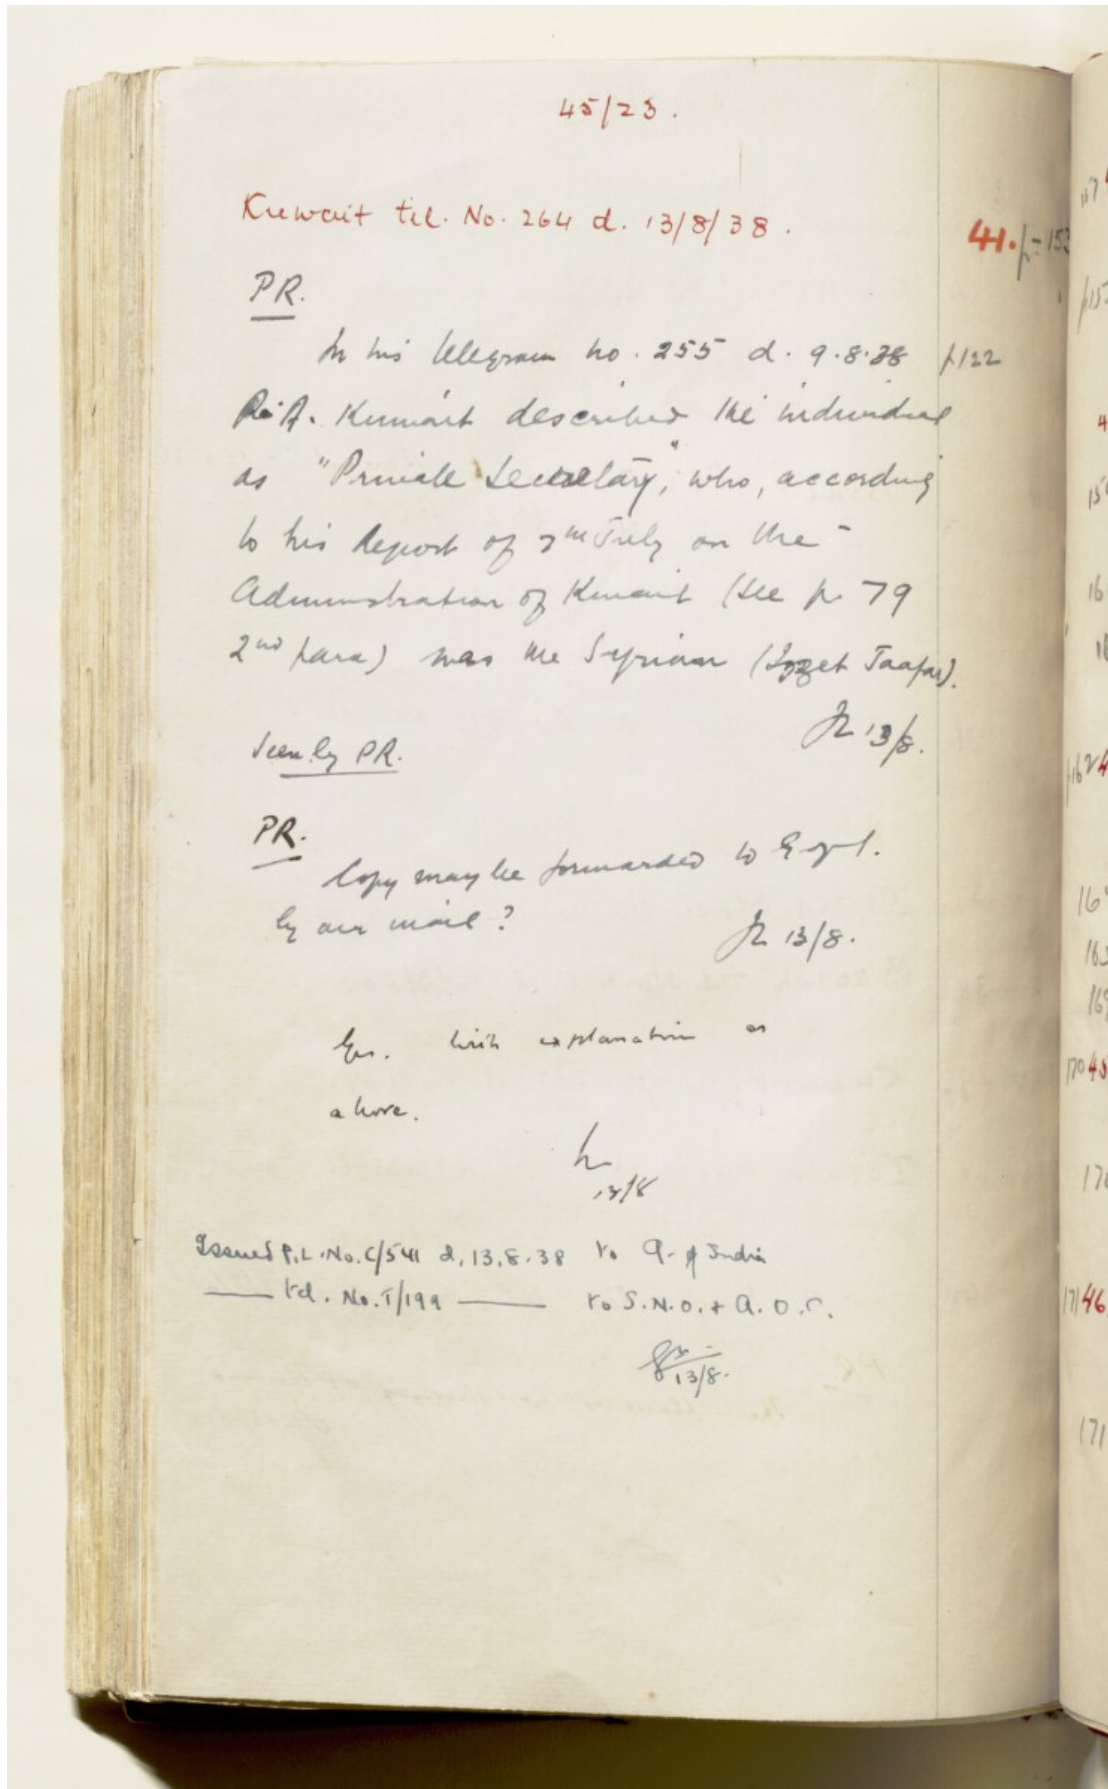 45/23.
Kuwait tel. No. 264 d. 13/8/38.
41. p-153
PR.
In his telegram no. 255 d. 9.8.38 p122
P.A. Kuwait described the individual
as "Private Secretary", who, according
to his Report of 7th July on the
Administration of Kuwait (See p. 79
2nd para) was the Syrian (Izzet Jaafar).
13/8.
Seen by PR.
PR.
Copy may be forwarded to Govt.
by air mail?
13/8.
Yes. With explanation as
above.
13/8
Issued P.L. No. C/541 d. 13.8.38 to G. of India
—— tel. No. T/199 —— to S.N.O. & A.O.C.
13/8.